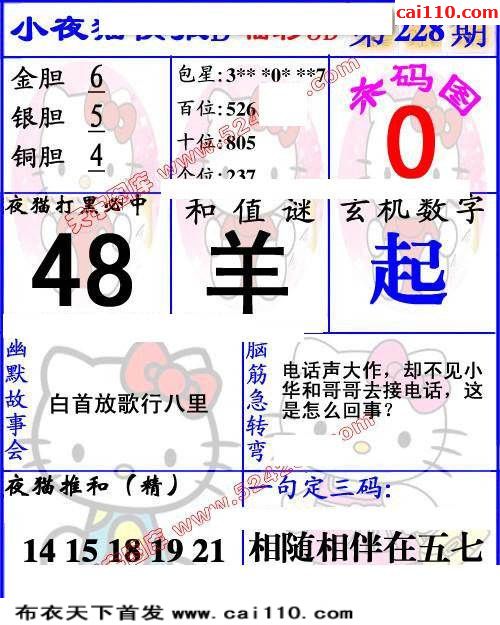 cai110.com
小夜猫
第228期
金胆 6
银胆 5
铜胆 4
包星:3** *0* **7
百位:526
十位:805
个位:237
来码图
0
夜猫打黑必中
48
和值谜
羊
玄机数字
起
幽默故事会
白首放歌行八里
脑筋急转弯
电话声大作，却不见小
华和哥哥去接电话，这
是怎么回事？
夜猫推和（精）
14 15 18 19 21
一句定三码:
相随相伴在五七
布衣天下首发 www.cai110.com